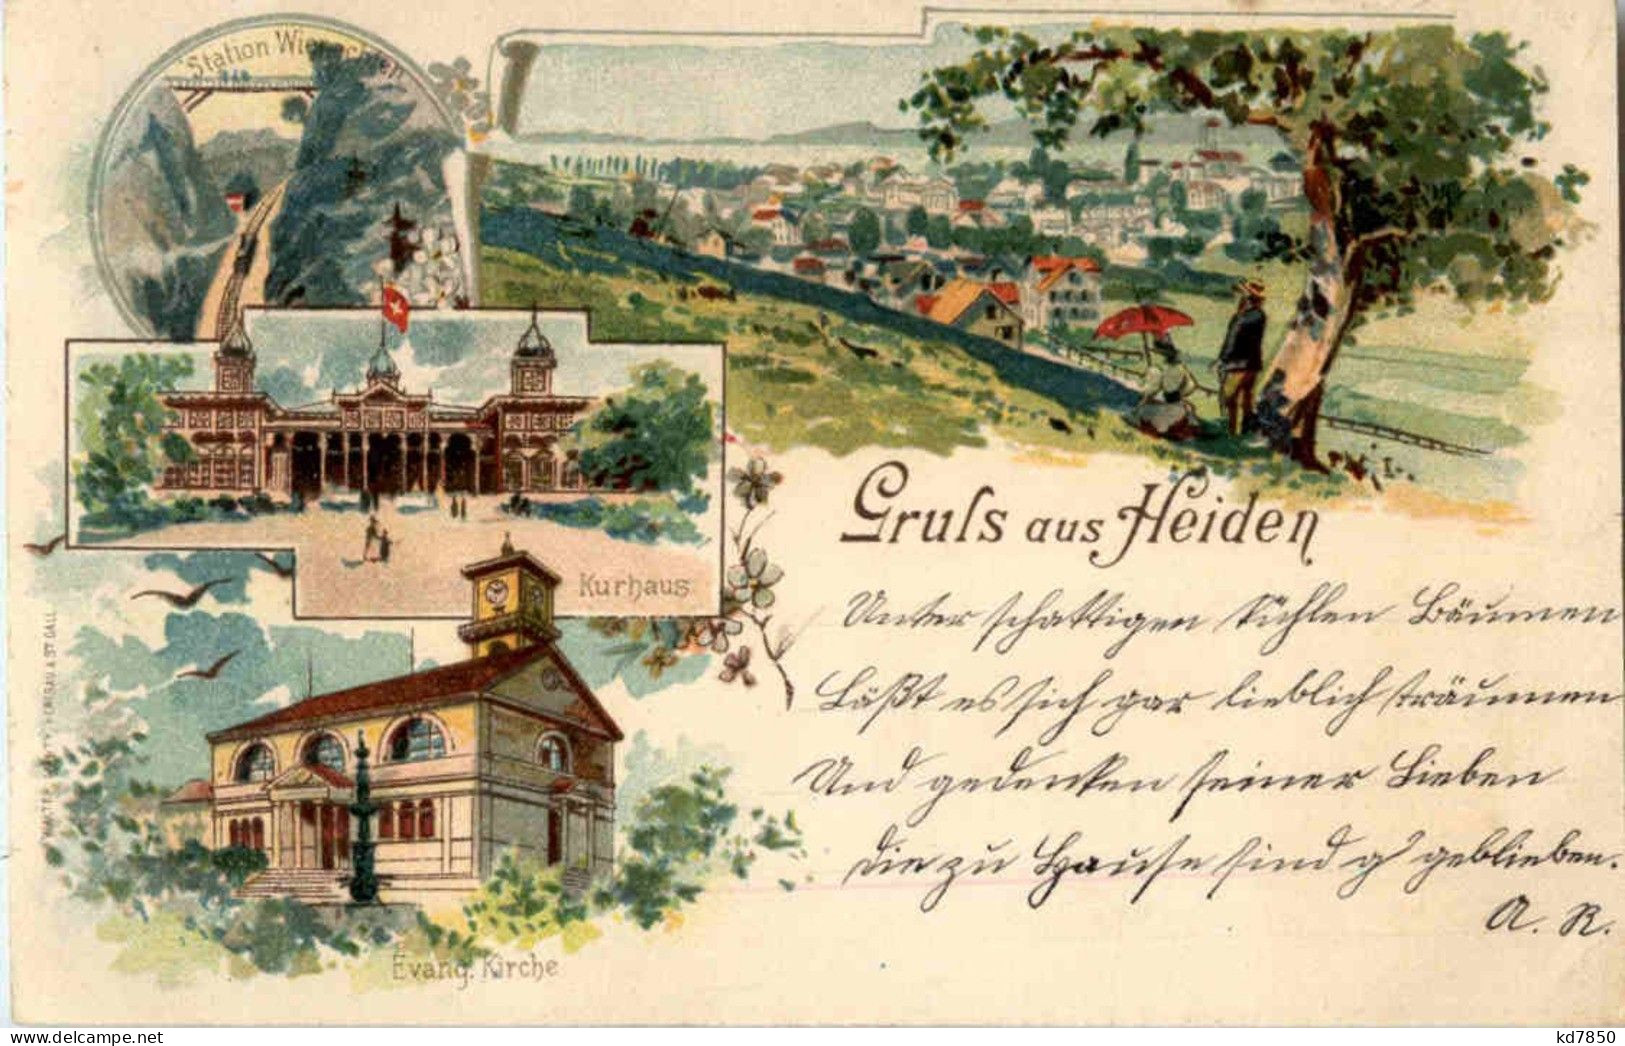 Station Wienachten
Gruss aus Heiden
Kurhaus
Unter schattigen kühlen Bäumen
Läßt es sich gar lieblich träumen
Und gedenken seiner Lieben
die zu Hause sind geblieben.
A. R.
Evang. Kirche
& ST GALL
delcampe.net
kd7850